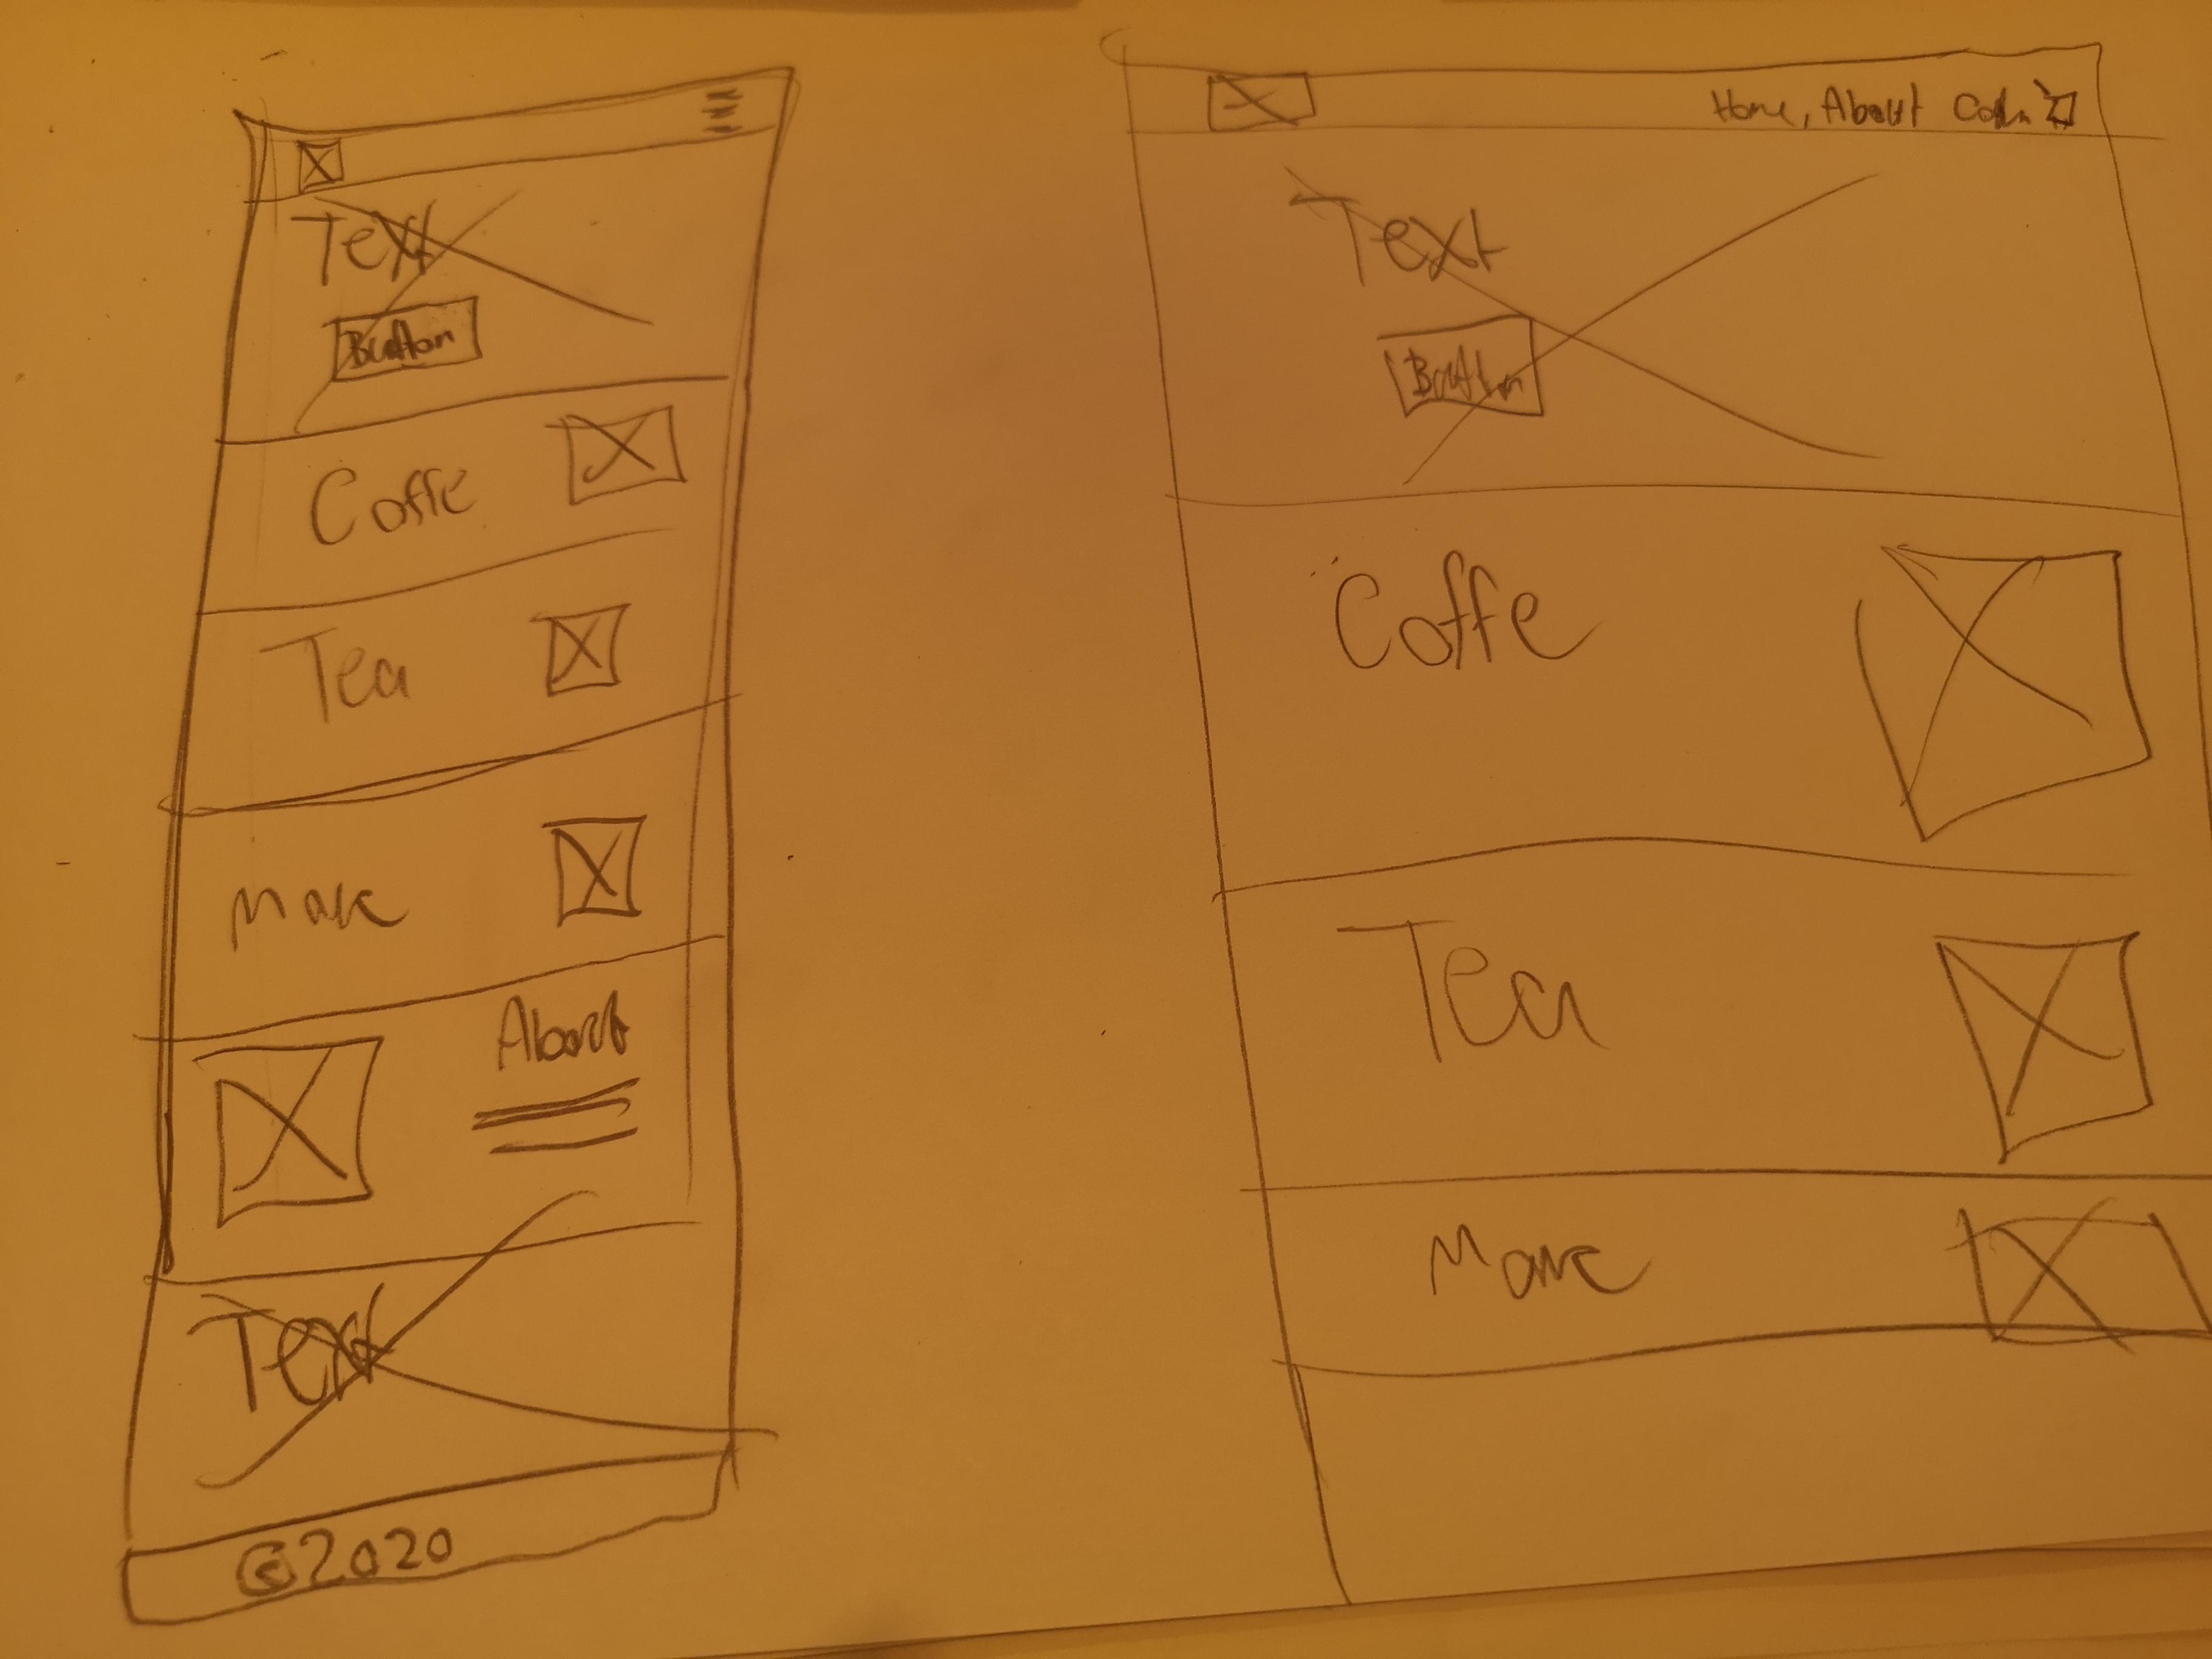 Text
Button
Coffe
Tea
About
Text
©2020
Home, About
Text
Button
Coffe
Tea